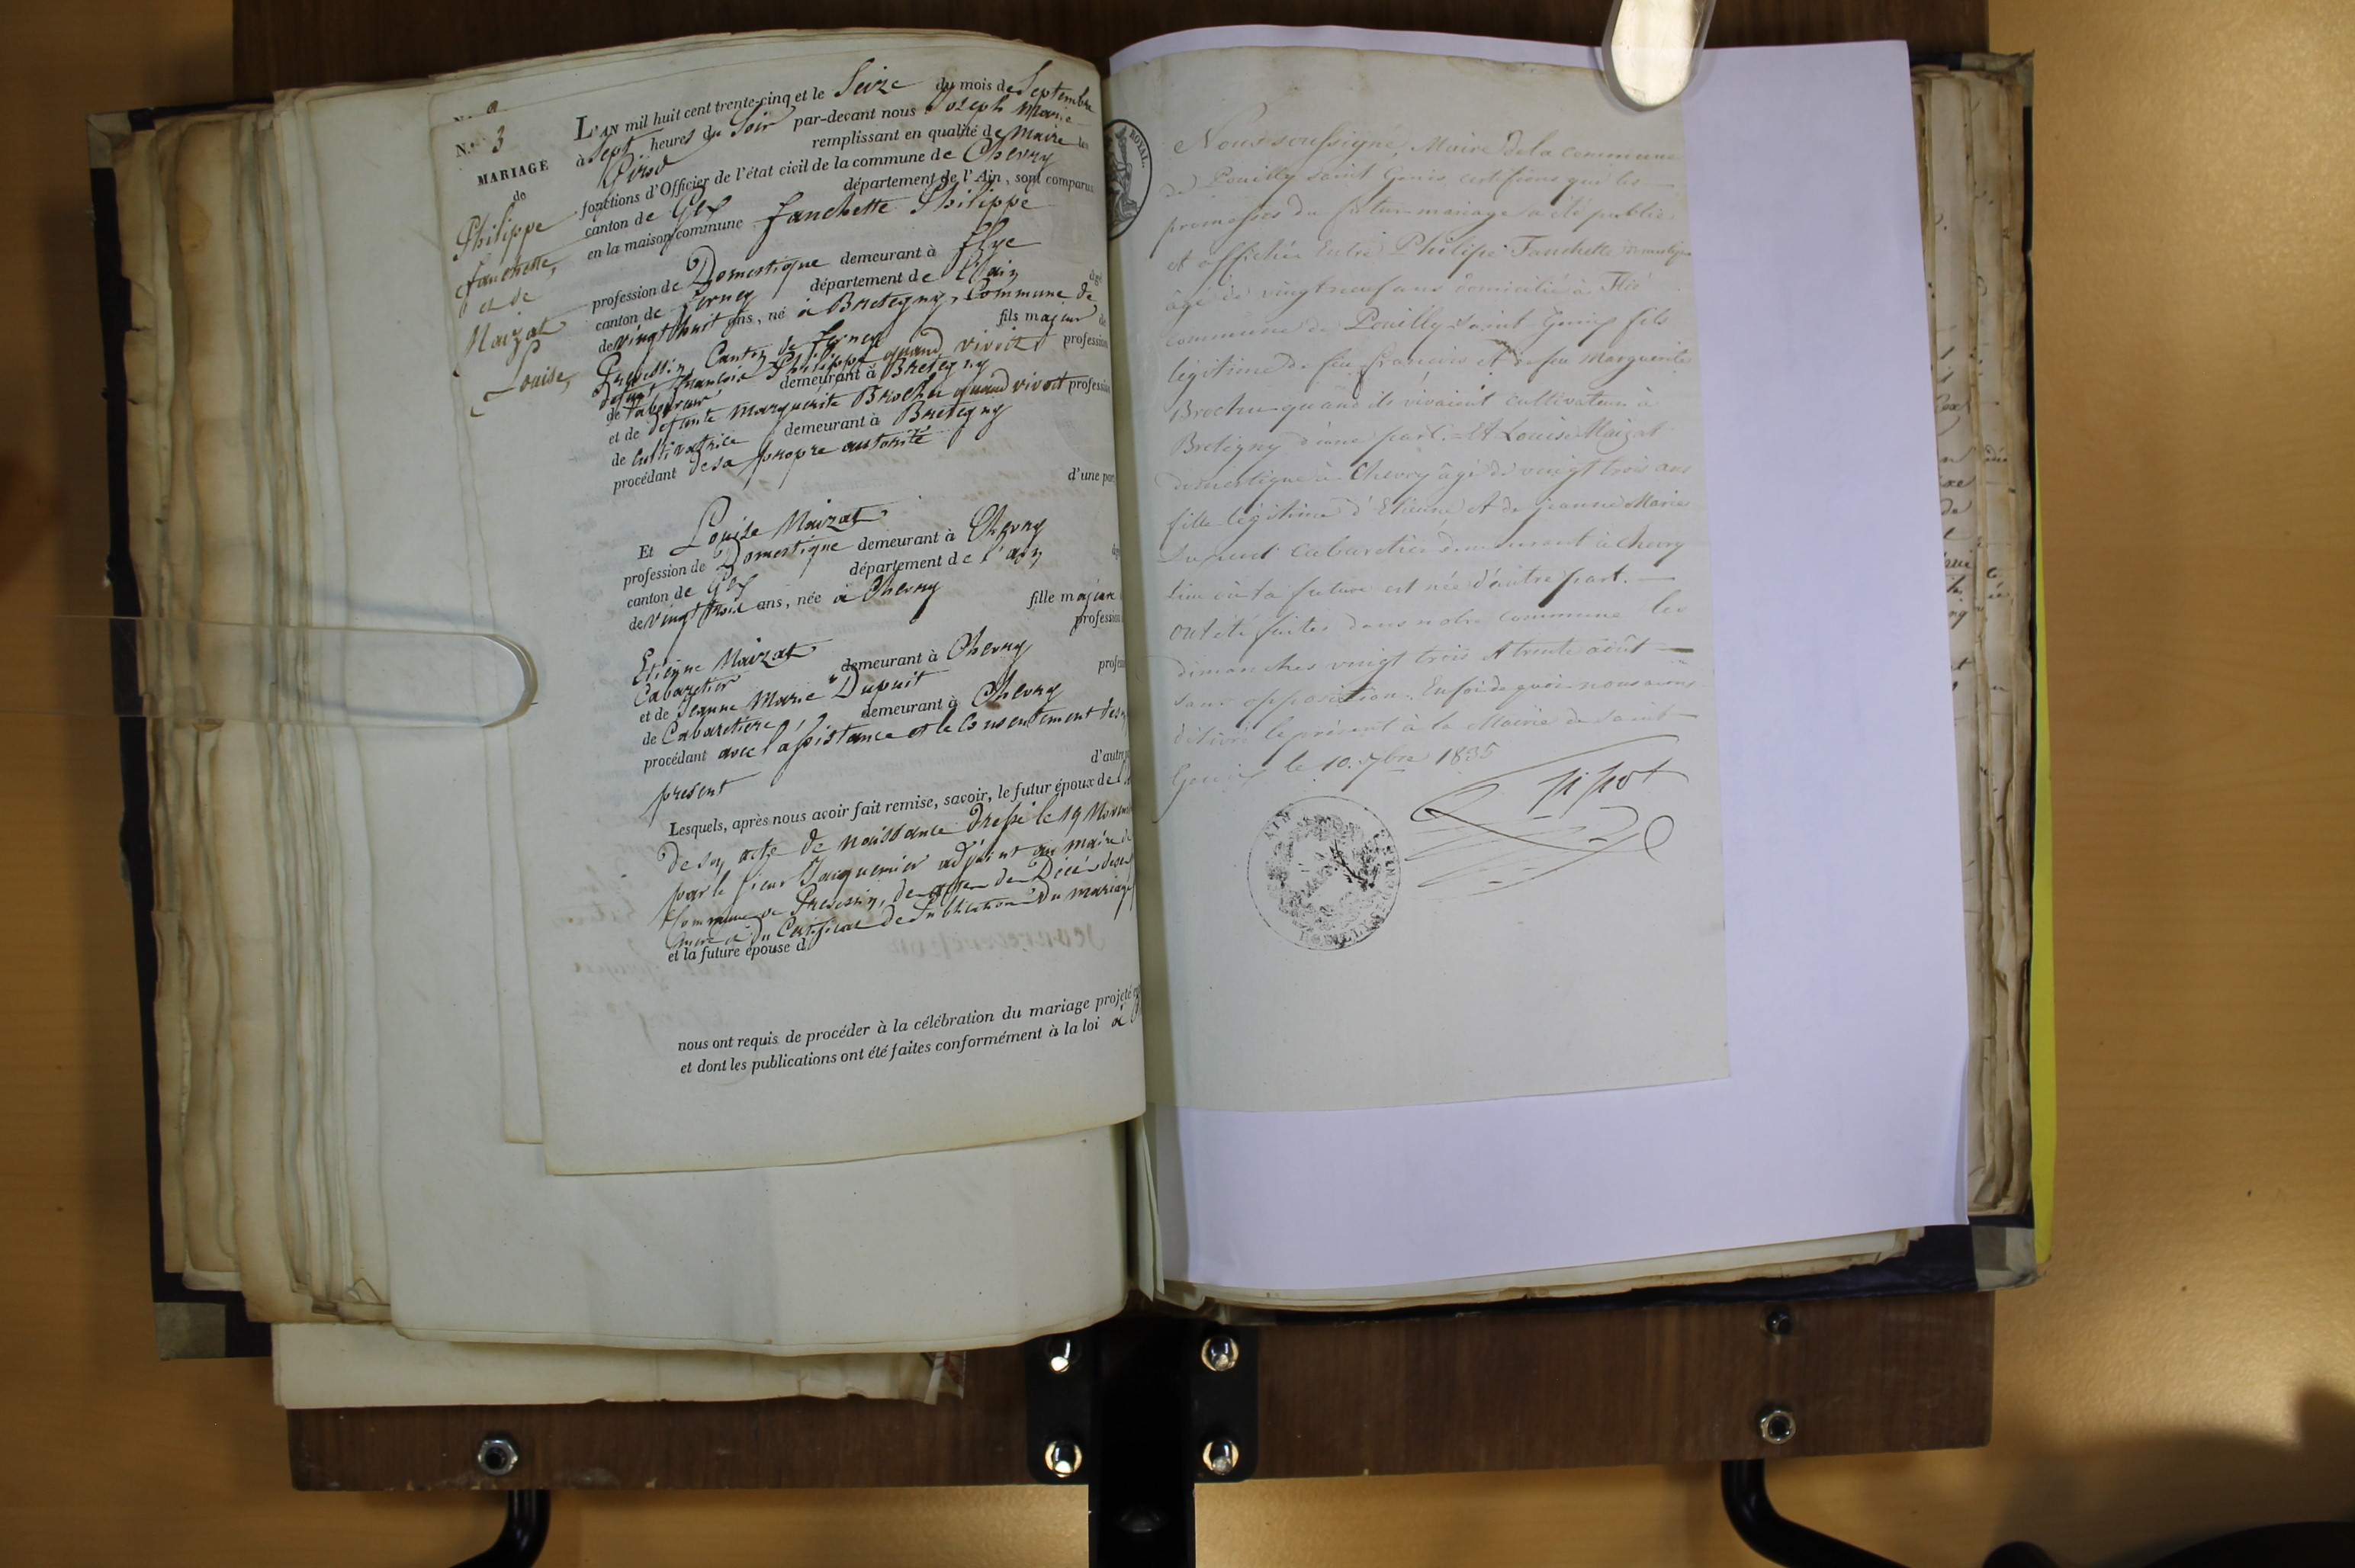 N.° 3
MARIAGE
de
Philippe
fanchette,
et de
Maizat
Louise,
L'AN mil huit cent trente-cinq et le Seize du mois de Septembre
à Sept heures du Soir par-devant nous Joseph Marie
Girod remplissant en qualité de Maire les
fonctions d'Officier de l'état civil de la commune de Chevry
canton de Gex département de l'Ain, sont comparus
en la maison commune fanchette Philippe
profession de Domestique demeurant à flye
canton de ferney département de l'ain
de Vingt huit ans, né à Bretegny, Commune de
Prevessin, Canton de ferney fils majeur de
defunt francois Philippe quand vivoit profession
de Laboureur demeurant à Bretegny
et de defunte Marguerite Brochu quand vivoit profession
de Cultivatrice demeurant à Bretegny
procédant de sa propre autorité
d'une par
Et Louise Maizat
profession de Domestique demeurant à Chevry
canton de Gex département de l'ain
de Vingt trois ans, née à Chevry
fille majeure
Etienne Maizat profession
Cabaretier demeurant à Chevry
et de Jeanne Marie Dupuit profes
de Cabaretiere demeurant à Chevry
procédant avec l'assistance et le Consentement des
present d'autre
Lesquels, après nous avoir fait remise, savoir, le futur époux de
de son acte de naissance Dressé le 19
par le sieur Jacquemier adjoint au maire de
Commune de Prevessin, de de Décés
et du Certificat de Publication du mariage
et la future épouse d
nous ont requis de procéder à la célébration du mariage projeté
et dont les publications ont été faites conformément à la loi à
ROYAL.
Nous soussigné, Maire de la commune
de Pouilly saint Genis certifions que les
promesses du futur mariage a été publiée
et affichée Entre Philipe Fanchette domestique
âgé de vingt neuf ans domicilié à Flié
commune de Pouilly saint Genis fils
légitime de feu francois et de feu Marguerite
Brochu quand ils vivaient cultivateurs à
Bretigny d'une part. - Et Louise Maizat
domestique à Chevry âgé de vingt trois ans
fille légitime d'Etienne et de jeanne Marie
Dupuit cabaretiers demeurant à Chevry
lieu où la future est née d'autre part.
ont été faites dans notre commune les
dimanches vingt trois et trente août
sans opposition. En foi de quoi nous avons
délivré le présent à la Mairie de saint
Genis le 10. 7bre 1835
pipot